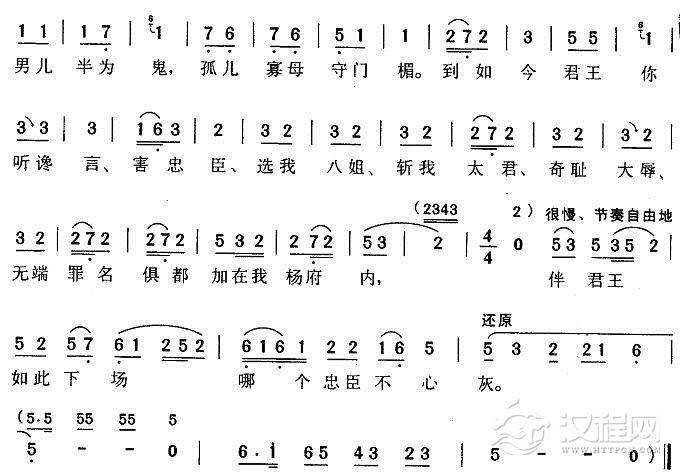 1 1 | 1 7 | 1 | 7 6 | 7 6 | 5 1 | 1 | 2 7 2 | 3 | 5 5 | 1 |
男儿 半为 鬼, 孤儿 寡母 守门 楣。到如 今 君王 你
3 3 | 3 | 1 6 3 | 2 | 3 2 | 3 2 | 3 2 | 2 7 2 | 3 2 | 3 2 |
听谗 言、害忠 臣、选我 八姐、斩我 太君、奇耻 大辱、
(2343 2) 很慢、节奏自由地
3 2 | 2 7 2 | 2 7 2 | 5 3 2 | 2 7 2 | 5 3 | 2 | 4/4 0 5 3 5 3 5 2 |
无端 罪名 俱都 加在我 杨府 内, 伴君王
还原
5 2 5 7 6 1 2 5 2 | 6 1 6 1 2 2 1 6 5 | 5 3 2 2 1 6 |
如此下场 哪个忠臣不心 灰。
(5.5 55 55 5
5 - - 0 | 6.1 65 43 23 | 5 - - 0) ‖
汉程网
WWW.HTTPCN.COM